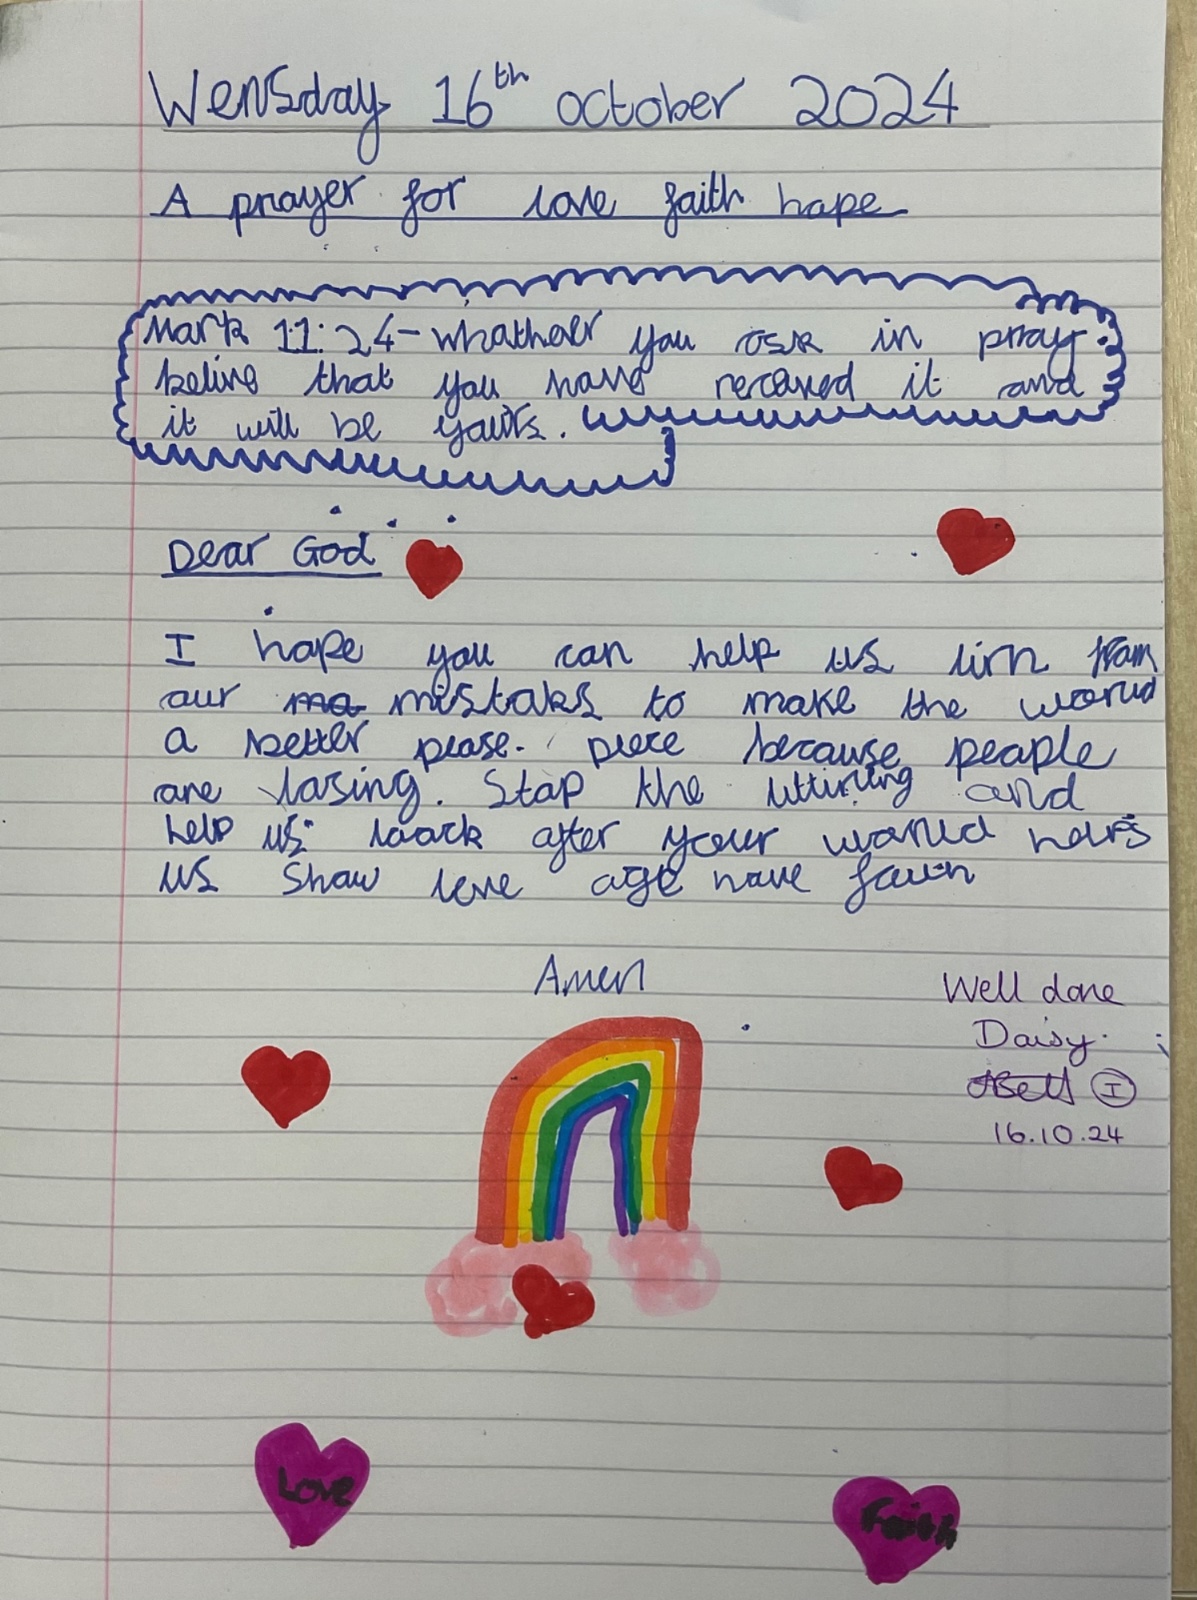 Wensday 16th october 2024
A prayer for love faith hope
Mark 11:24- whathever you ask in pray
belive that you have recaved it and
it will be yours.
Dear God
I hope you can help us lirn from
our ma mistaks to make the world
a better plase. because people
are losing. Stop the and
help us loock after your world
us show love have faith
Amen
Well done
Daisy.
I
16.10.24
Love
Faith